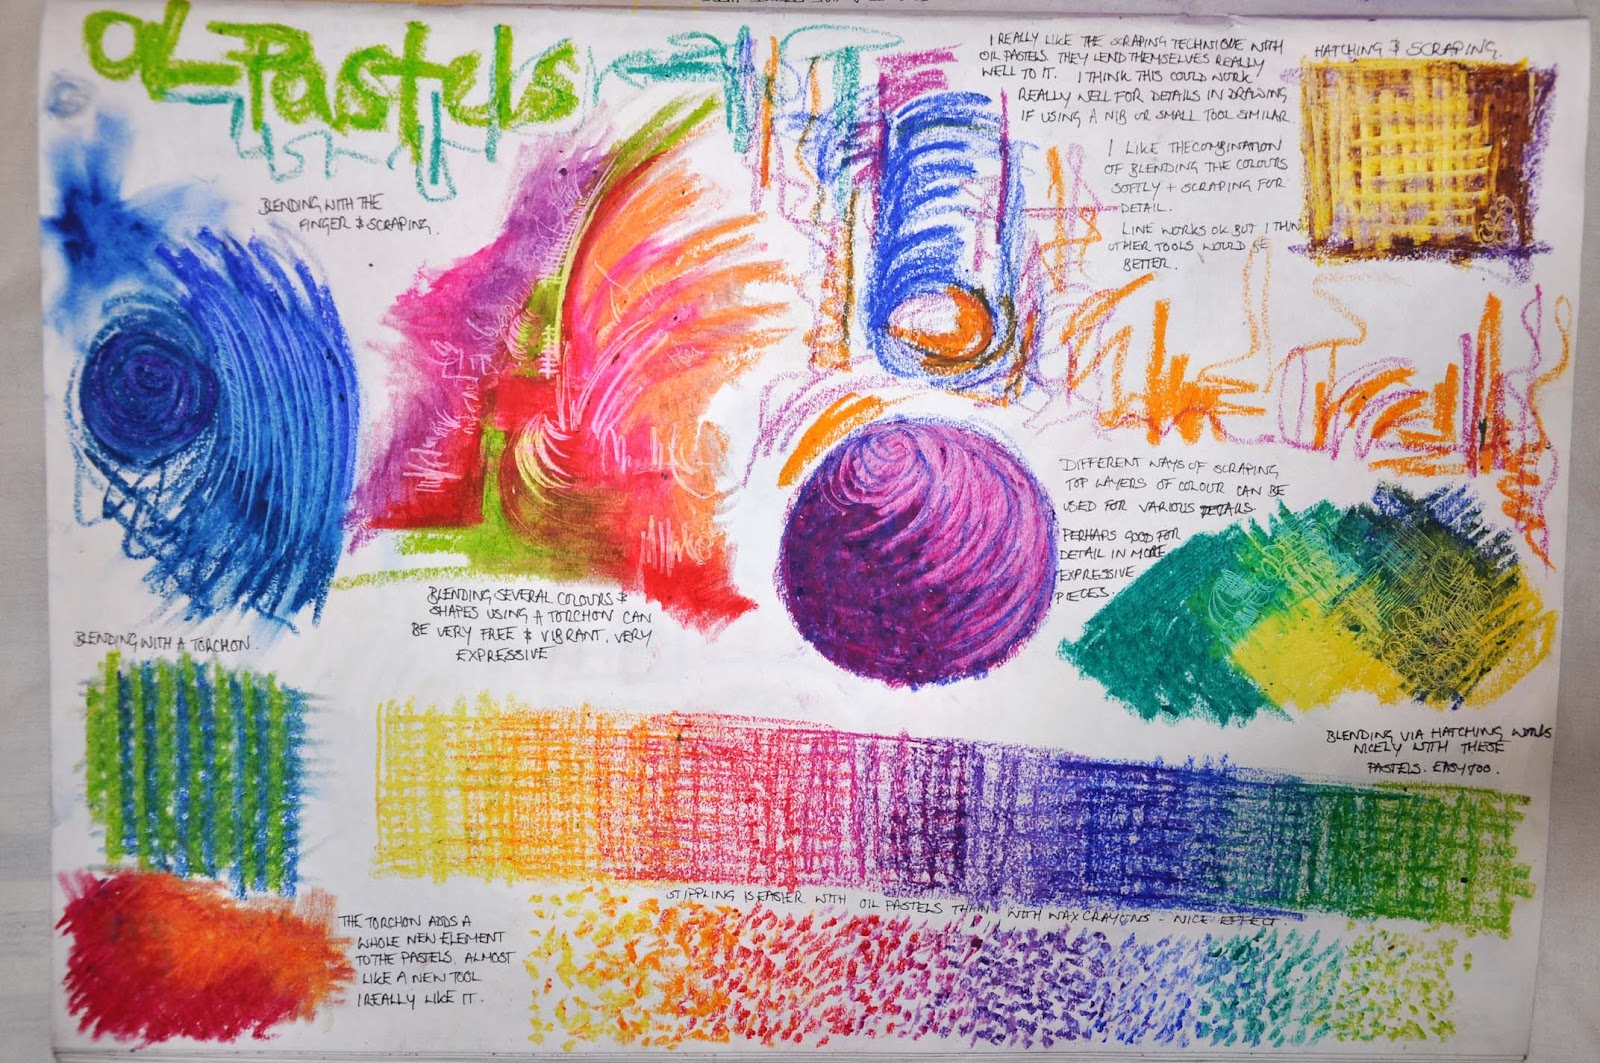 OIL PASTELS
BLENDING WITH THE
FINGER & SCRAPING.
I REALLY LIKE THE SCRAPING TECHNIQUE WITH
OIL PASTELS. THEY LEND THEMSELVES REALLY
WELL TO IT. I THINK THIS COULD WORK
REALLY WELL FOR DETAILS IN DRAWING
IF USING A NIB OR SMALL TOOL SIMILAR.
I LIKE THE COMBINATION
OF BLENDING THE COLOURS
SOFTLY + SCRAPING FOR
DETAIL.
LINE WORKS OK BUT I THINK
OTHER TOOLS WOULD BE
BETTER.
HATCHING & SCRAPING.
DIFFERENT WAYS OF SCRAPING
TOP LAYERS OF COLOUR CAN BE
USED FOR VARIOUS DETAILS.
PERHAPS GOOD FOR
DETAIL IN MORE
EXPRESSIVE
PIECES.
BLENDING SEVERAL COLOURS &
SHAPES USING A TORCHON CAN
BE VERY FREE & VIBRANT. VERY
EXPRESSIVE
BLENDING WITH A TORCHON.
BLENDING VIA HATCHING WORKS
NICELY WITH THESE
PASTELS. EASY TOO.
STIPPLING IS EASIER WITH OIL PASTELS THAN WITH WAX CRAYONS - NICE EFFECT.
THE TORCHON ADDS A
WHOLE NEW ELEMENT
TO THE PASTELS, ALMOST
LIKE A NEW TOOL
I REALLY LIKE IT.